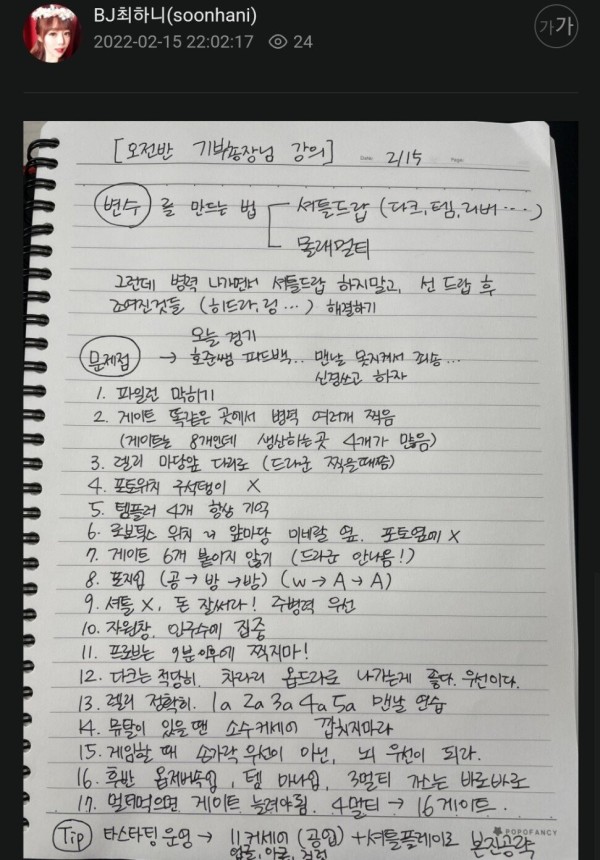 BJ최하니(soonhani)
2022-02-15 22:02:17 24
가가
[오전반 기부총장님 강의] Date. 2/15 Page.
변수 를 만드는 법 셔틀드랍 (다크, 템, 리버 ...)
몰래멀티
그런데 병력 나가면서 셔틀드랍 하지말고, 선 드랍 후
조여진것들 (히드라, 렁 ...) 해결하기
오늘 경기
문제점 → 호준쌤 피드백... 맨날 못지켜서 죄송...
신경쓰고 하자
1. 파일런 막히기
2. 게이트 똑같은 곳에서 병력 여러개 찍음
(게이트는 8개인데 생산하는곳 4개가 많음)
3. 렐리 마당앞 다리로 (드라군 찍을때쯤)
4. 포토위치 구석탱이 X
5. 템플러 4개 항상 기억
6. 로보틱스 위치 → 앞마당 미네랄 옆. 포토옆에 X
7. 게이트 6개 붙이지 않기 (드라군 안나옴!)
8. 포지업 (공→방→방) (W→A→A)
9. 셔틀 X, 돈 잘써라! 주병력 우선
10. 자원창, 인구수에 집중
11. 프로브는 9분이후에 찍지마!
12. 다크는 적당히. 차라리 옵드라로 나가는게 좋다. 우선이다.
13. 렐리 정확히. 1a 2a 3a 4a 5a 맨날 연습
14. 뮤탈이 있을 땐 소수커세어 깝치지마라
15. 게임할 때 손가락 우선이 아닌, 뇌 우선이 되라.
16. 후반 옵저버속업, 템 마나업, 3멀티 가스는 바로바로
17. 멀티먹으면 게이트 늘려야됨. 4멀티 → 16게이트.
Tip 타스타팅 운영 → 11커세어 (공업) + 셔틀플레이로 본진공략
POPOFANCY